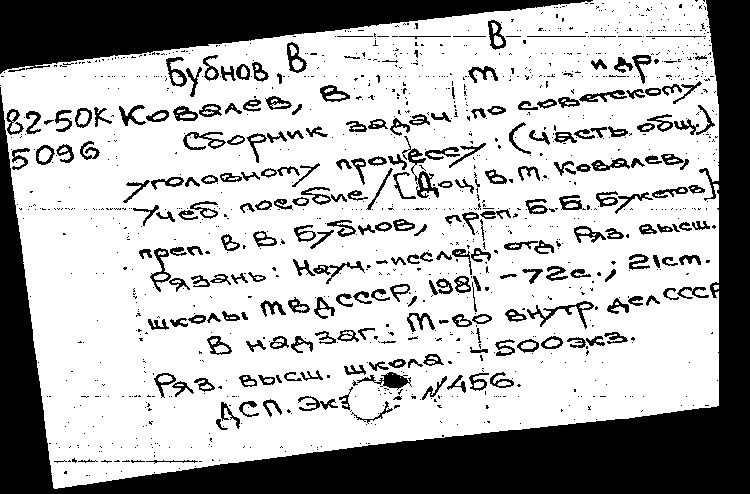 Бубнов, В. В.
82-50К Ковалев, В. М. и др.
5096 Сборник задач по советскому
уголовному процессу: (Часть общ.)
Учеб. пособие / [Доц. В.М. Ковалев,
преп. В.В. Бубнов, преп. Б.Б. Букетов].-
Рязань: Науч.-исслед. отд. Ряз. высш.
школы МВД СССР, 1981. - 72с.; 21см.
В надзаг.: М-во внутр. дел СССР
Ряз. высш. школа. - 500 экз.
ДСП. Экз. N 456.